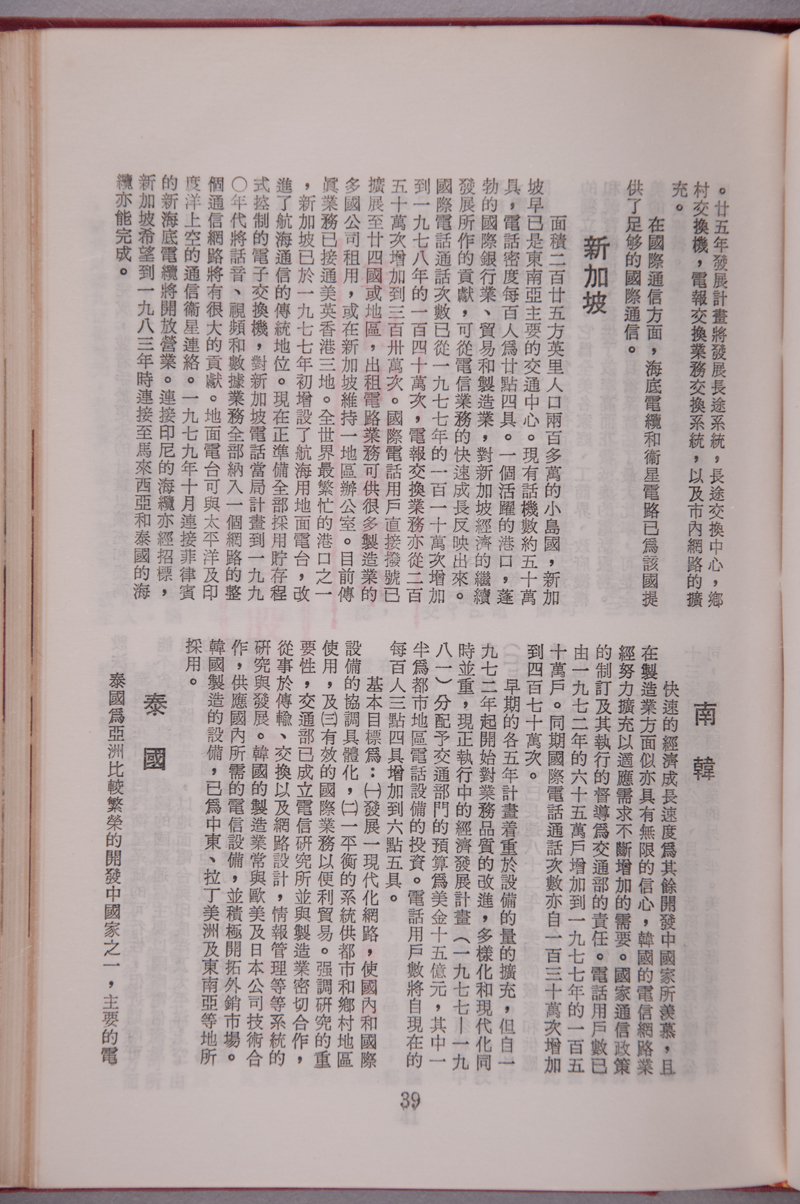 。廿五年發展計畫將發展長途系統，長途交換中心，鄉
村交換機，電報交換業務交換系統，以及市內網路的擴
充。
在國際通信方面，海底電纜和衞星電路已爲該國提
供了足够的國際通信。
新加坡
面積二百廿五方英里人口兩百多萬的小島國，新加
坡早已是東南亞主要的交通中心。現有話機數約五十萬
具，電話密度每百人爲廿點四具。一個活躍的港口，蓬
勃的國際銀行業、貿易和製造業，對新加坡經濟的繼續
發展所作的貢獻，可從電信業務的快速成長反映出來。
國際電話通話次數已從一九七七年的一百一十萬次增加
到一九七八年的一百四十萬次，電報交換業務亦從二百
五十萬次增加到三百卅萬次。國際電話用戶直接撥號已
擴展至廿四國或地區，出租電路業務可供很多製造業的
多國公司租用，或在新加坡維持一地區辦公室。目前傳
眞業務已接通美英香港三地。全世界最繁忙的港口之一
，新加坡已於一九七七年初增設了航海用地面電台，改
進了航海通信的傳統地位。現在正準備全部採用貯存程
式控制的電子交換機，對新加坡電話當局計畫到一九九
〇年代將話音、視頻和數據業務全部納入一個網路的整
個通信網路將有很大的貢獻。地面電台可與太平洋及印
度洋上空的通信衞星連絡。一九七九年十月連接菲律賓
的新海底電纜將開放營業。連接印尼的海纜亦經招標，
新加坡希望到一九八三年時連接至馬來西亞和泰國的海
纜亦能完成。
南韓
快速的經濟成長速度爲其餘開發中國家所羨慕，且
在製造業方面似亦具有無限的信心，韓國的電信網路業
經努力擴充以適應需求不斷增加的需要。國家通信政策
的制訂及其執行的督導爲交通部的責任。電話用戶數已
由一九七二年的六十五萬戶增加到一九七七年的一百五
十萬戶。同期國際電話通話次數亦自一百三十萬次增加
到四百七十萬次。
早期的各五年計畫着重於設備的量的擴充，但自一
九七二年起開始對業務品質的改進，多樣化和現代化同
時並重，現正執行中的經濟發展計畫（一九七七－一九
八一）分配予交通部門的預算爲美金十五億元，其中一
半爲都市地區電話設備的投資。電話用戶數將自現在的
每百人三點四具增加到六點五具。
基本目標爲：㈠發展一現代化網路，使國內和國際
設備的協調具體化，㈡一平衡的系統供都市和鄉村地區
使用，及㈢有效的國際業務以便利貿易。强調硏究的重
要性，交通部已成立電信硏究所並與製造業密切合作，
從事於傳輸、交換以及網路設計，情報管理等等系統的
硏究與發展。韓國的製造業常與歐美及日本公司技術合
作，供應國內所需的電信設備，並積極開拓外銷市場。
韓國製造的設備，已爲中東、拉丁美洲及東南亞等地所
採用。
泰國
泰國爲亞洲比較繁榮的開發中國家之一，主要的電
39